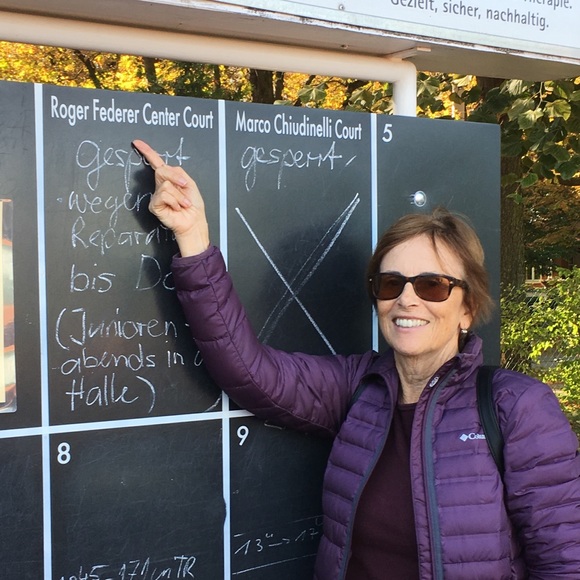 Gezielt, sicher, nachhaltig.
Roger Federer Center Court
gesperrt
wegen
bis
(Junioren-
abends in
Halle)
Marco Chiudinelli Court
gesperrt
5
8
9
Columbia